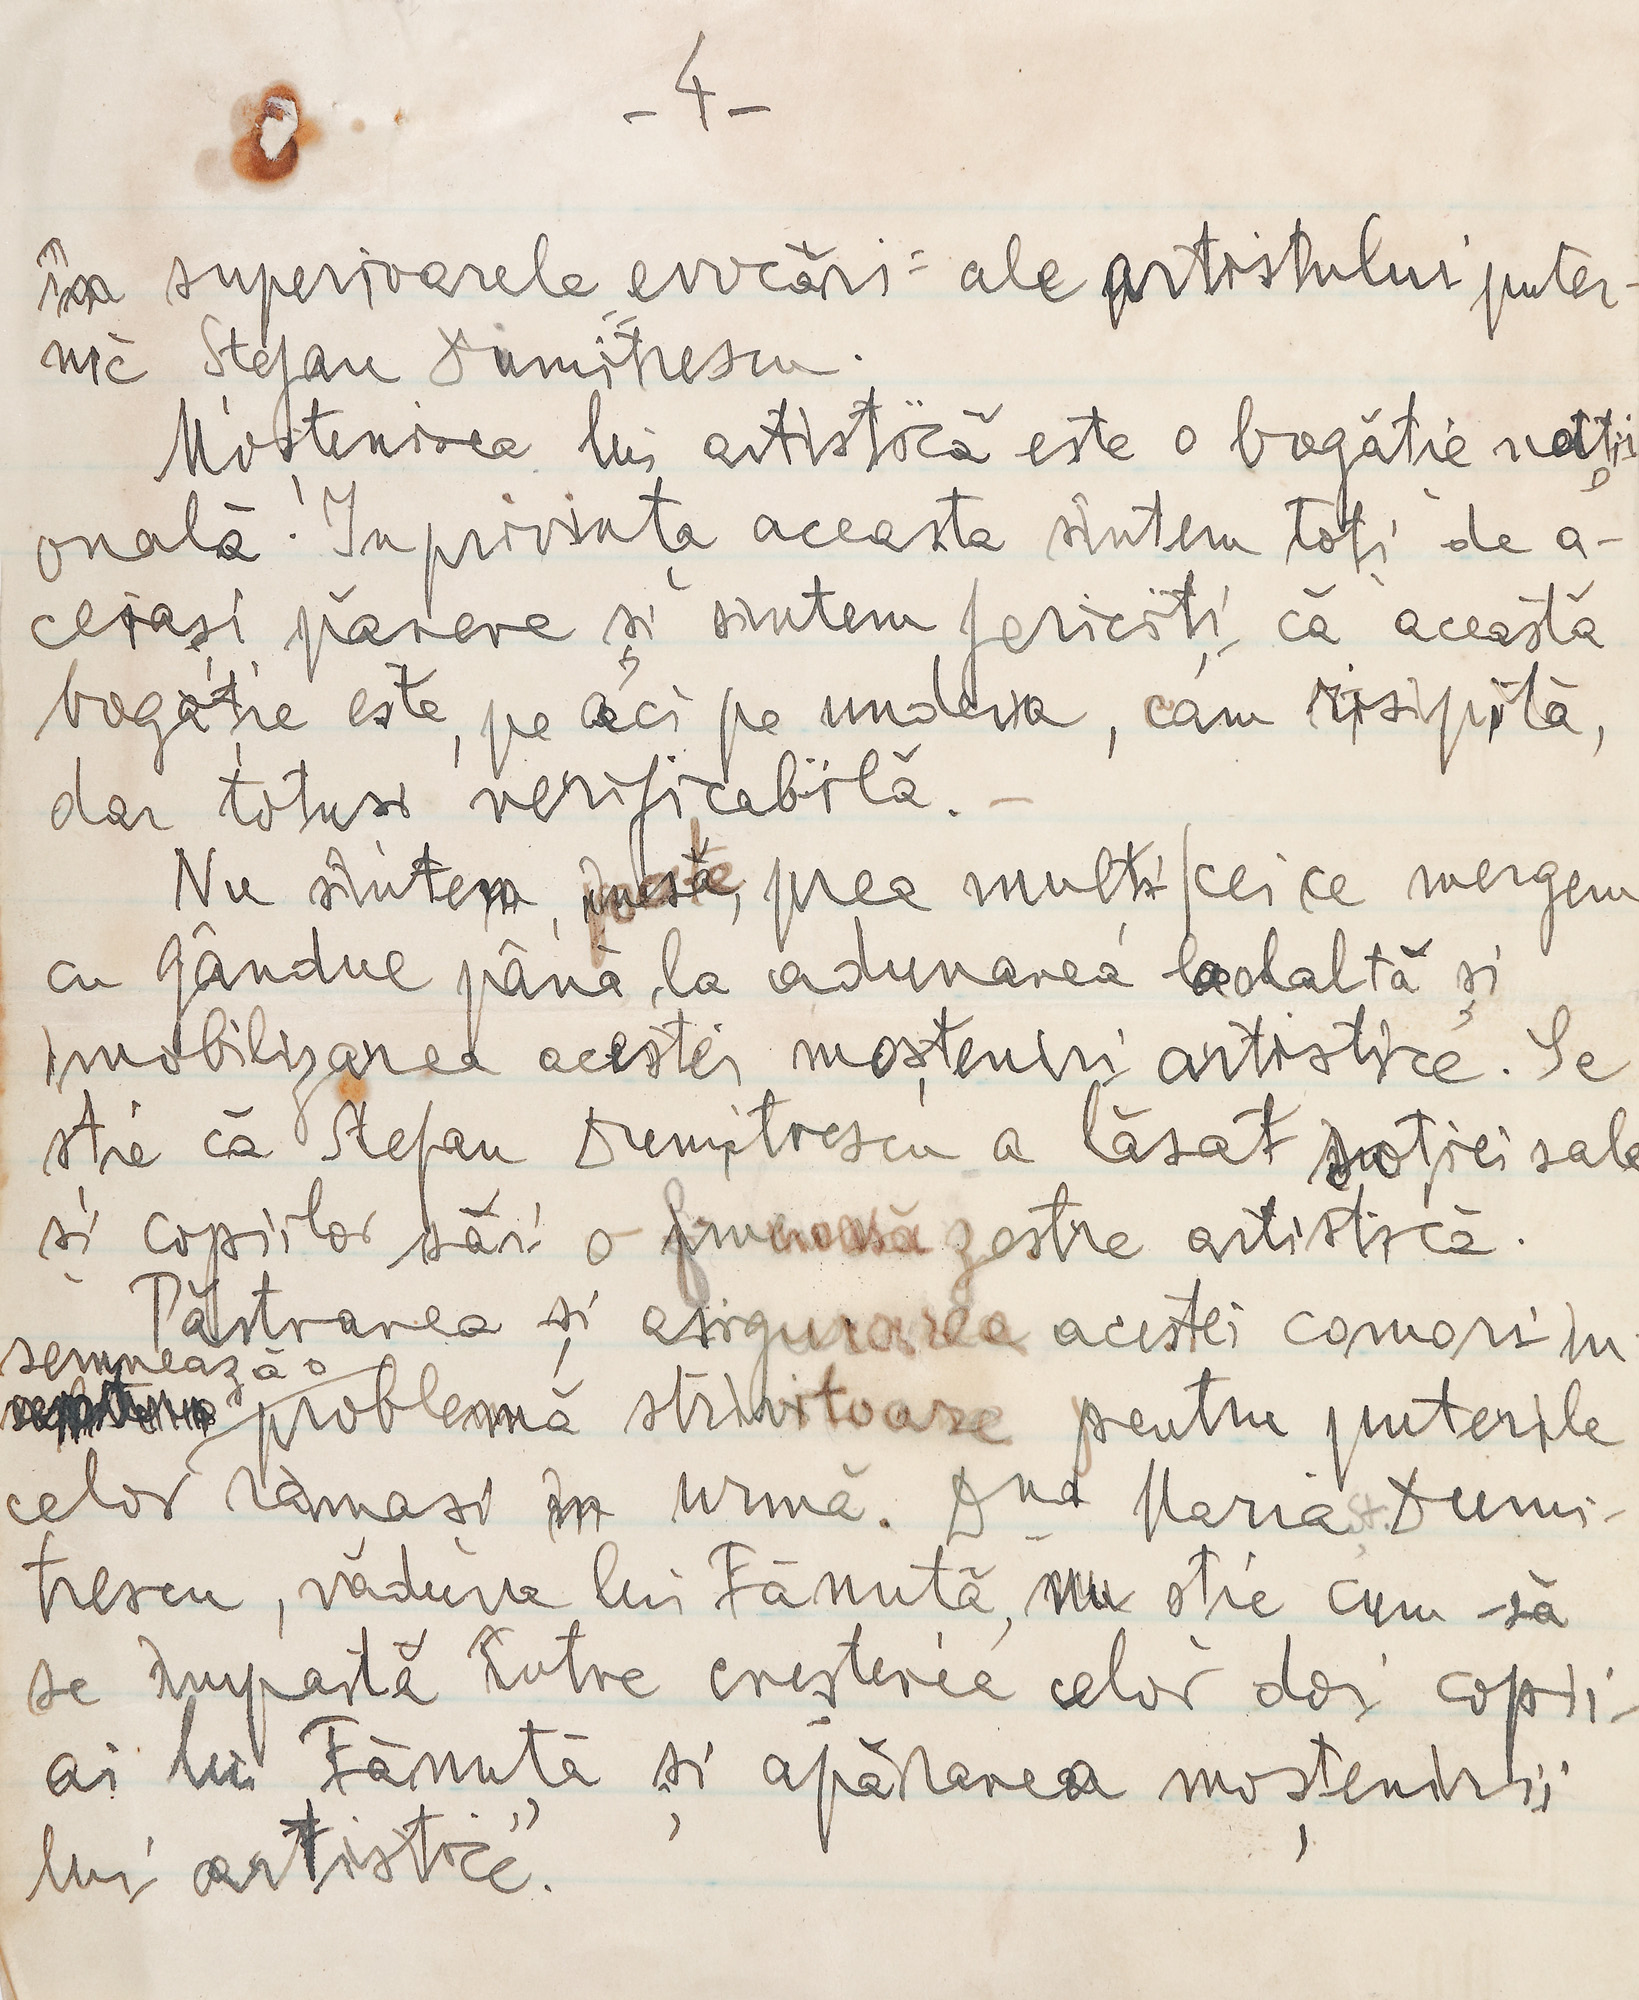 - 4 -
în superioarele evocări ale artistului puter-
nic Stefan Dumitrescu.
Moștenirea lui artistică este o bogătie nați
onală. In privința aceasta sîntem toți de a-
ceiași părere și sintem fericiți că această
bogăție este, pe aci pe undeva, cam risipită,
dar totusi verificabilă. -
Nu sîntem, însă, prea multi cei ce mergem
cu gândul până la adunarea laolaltă și
imobilizarea acestei moșteniri artistice. Se
stie că Stefan Dumitrescu a lăsat soției sale
si copiilor săi o frumoasă zestre artistică.
Păstrarea și asigurarea acestei comori în-
semnează o
problemă strivitoare pentru puterile
celor rămasi în urmă. Dna Maria St. Dumi-
trescu, văduva lui Fănută, nu stie cum să
se împartă între creșterea celor doi copii
ai lui Fănuță și apărarea moștenirii
lui artistice".